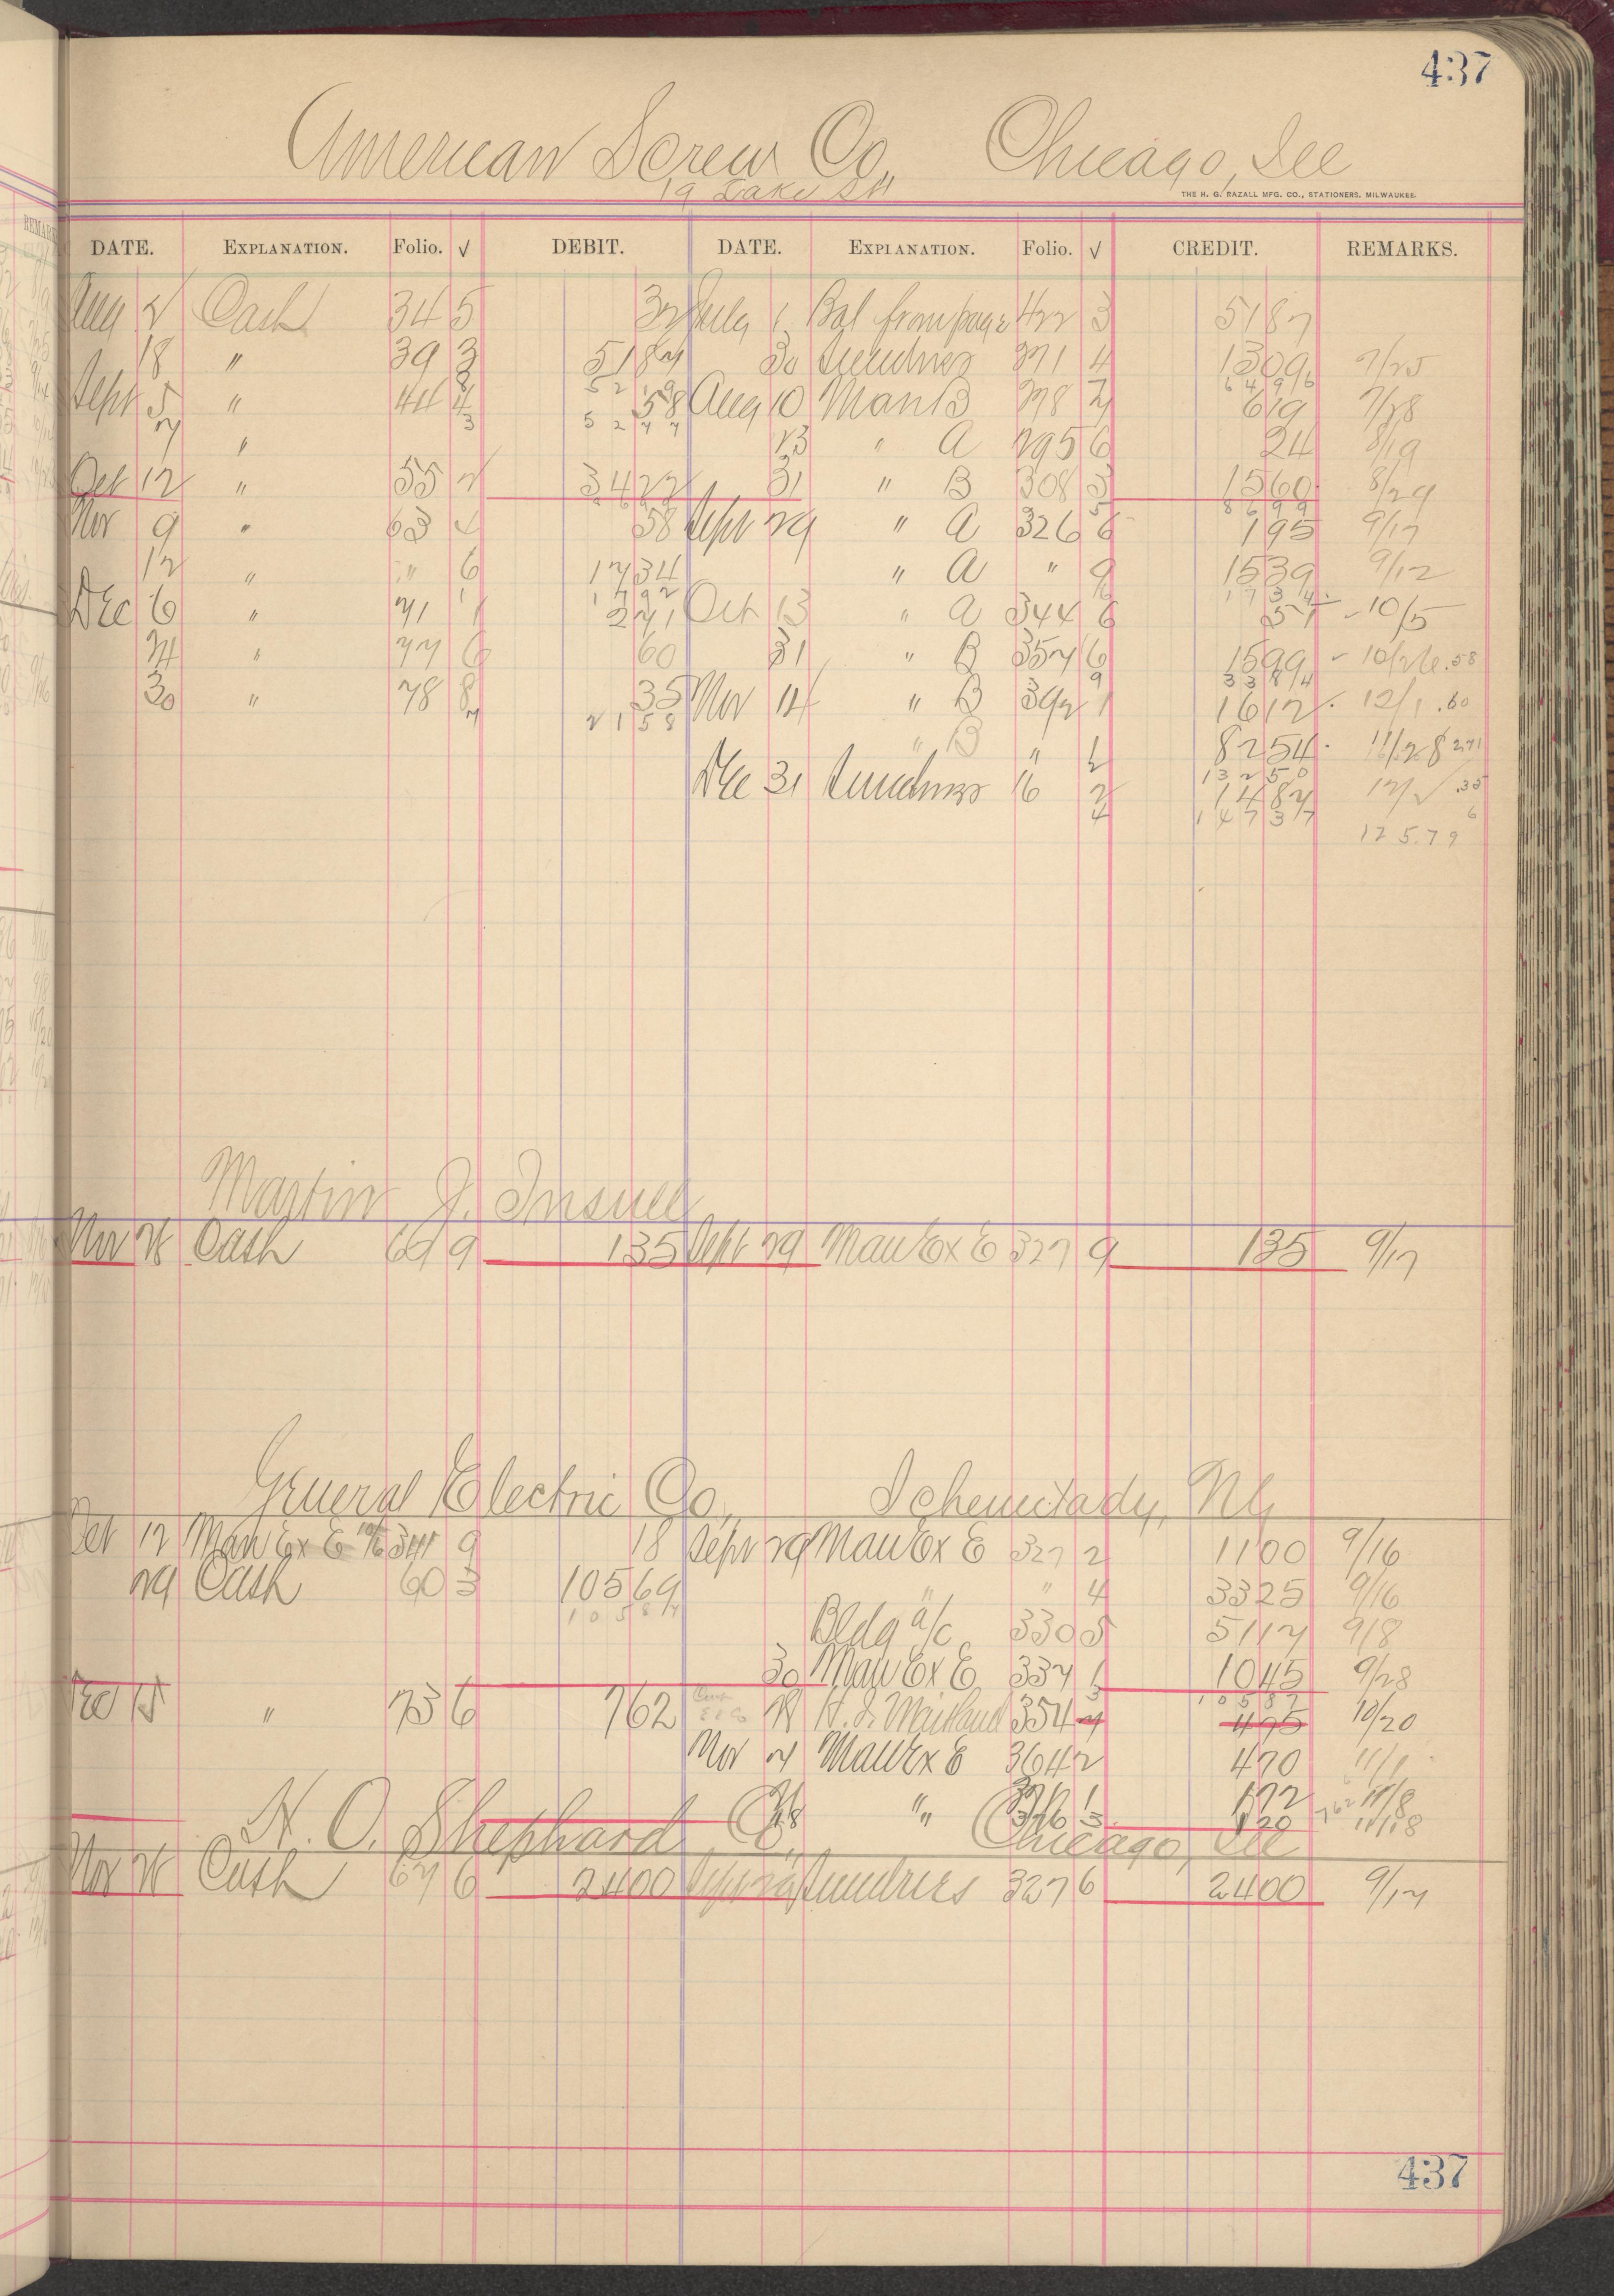 437
American Screw Co., Chicago, Ill
19 Lake St
THE H. G. RAZALL MFG. CO., STATIONERS. MILWAUKEE.
DATE. EXPLANATION. Folio. √ DEBIT. DATE. EXPLANATION. Folio. √ CREDIT. REMARKS.
Aug 2 Cash 34 5 32 July 1 Bal from page 422 3 5187
18 " 39 3 5187 30 Sundries 271 4 1309 7/25
5219 6496
Sept 5 " 44 4 58 Aug 10 Man B 278 2 619 7/28
7 " 3 5277 23 " A 295 6 24 8/19
Oct 12 " 55 2 3422 31 " B 308 3 1560 8/29
8699
Nov 9 " 63 4 58 Sept 29 " A 326 6 195 9/17
12 " " 6 1734 " A " 9 1539 9/12
1792 1734
Dec 6 " 71 1 271 Oct 13 " A 344 6 51 - 10/5
24 " 77 6 60 31 " B 357 6 1599 - 10/26 .58
3384
30 " 78 8 35 Nov 14 " B 392 1 1612 12/1 .60
2158
" B " 8254 11/28 271
13250
Dec 31 Sundries 16 2 1487 12/2 .35
4 14737 6
125.79
Martin J. Insull
Nov 26 Cash 69 9 135 Sept 29 Man Ex E 327 9 135 9/17
General Electric Co., Schenectady, NY
Oct 12 Man Ex E 10/6 341 9 18 Sept 29 Man Ex E 327 2 1100 9/16
29 Cash 60 3 10569 " " 4 3325 9/16
10587
Bldg a/c 330 5 5117 9/8
30 Man Ex E 337 1 1045 9/28
10587
Dec 15 " 73 6 762 354 475 10/20
Nov 7 Man Ex E 364 2 470 11/1
" 1 172 11/8
28 " 376 3 120 762 11/18
H. O. Shephard Co., Chicago, Ill
Nov 26 Cash 67 6 2400 Sept 29 Sundries 327 6 2400 9/17
437